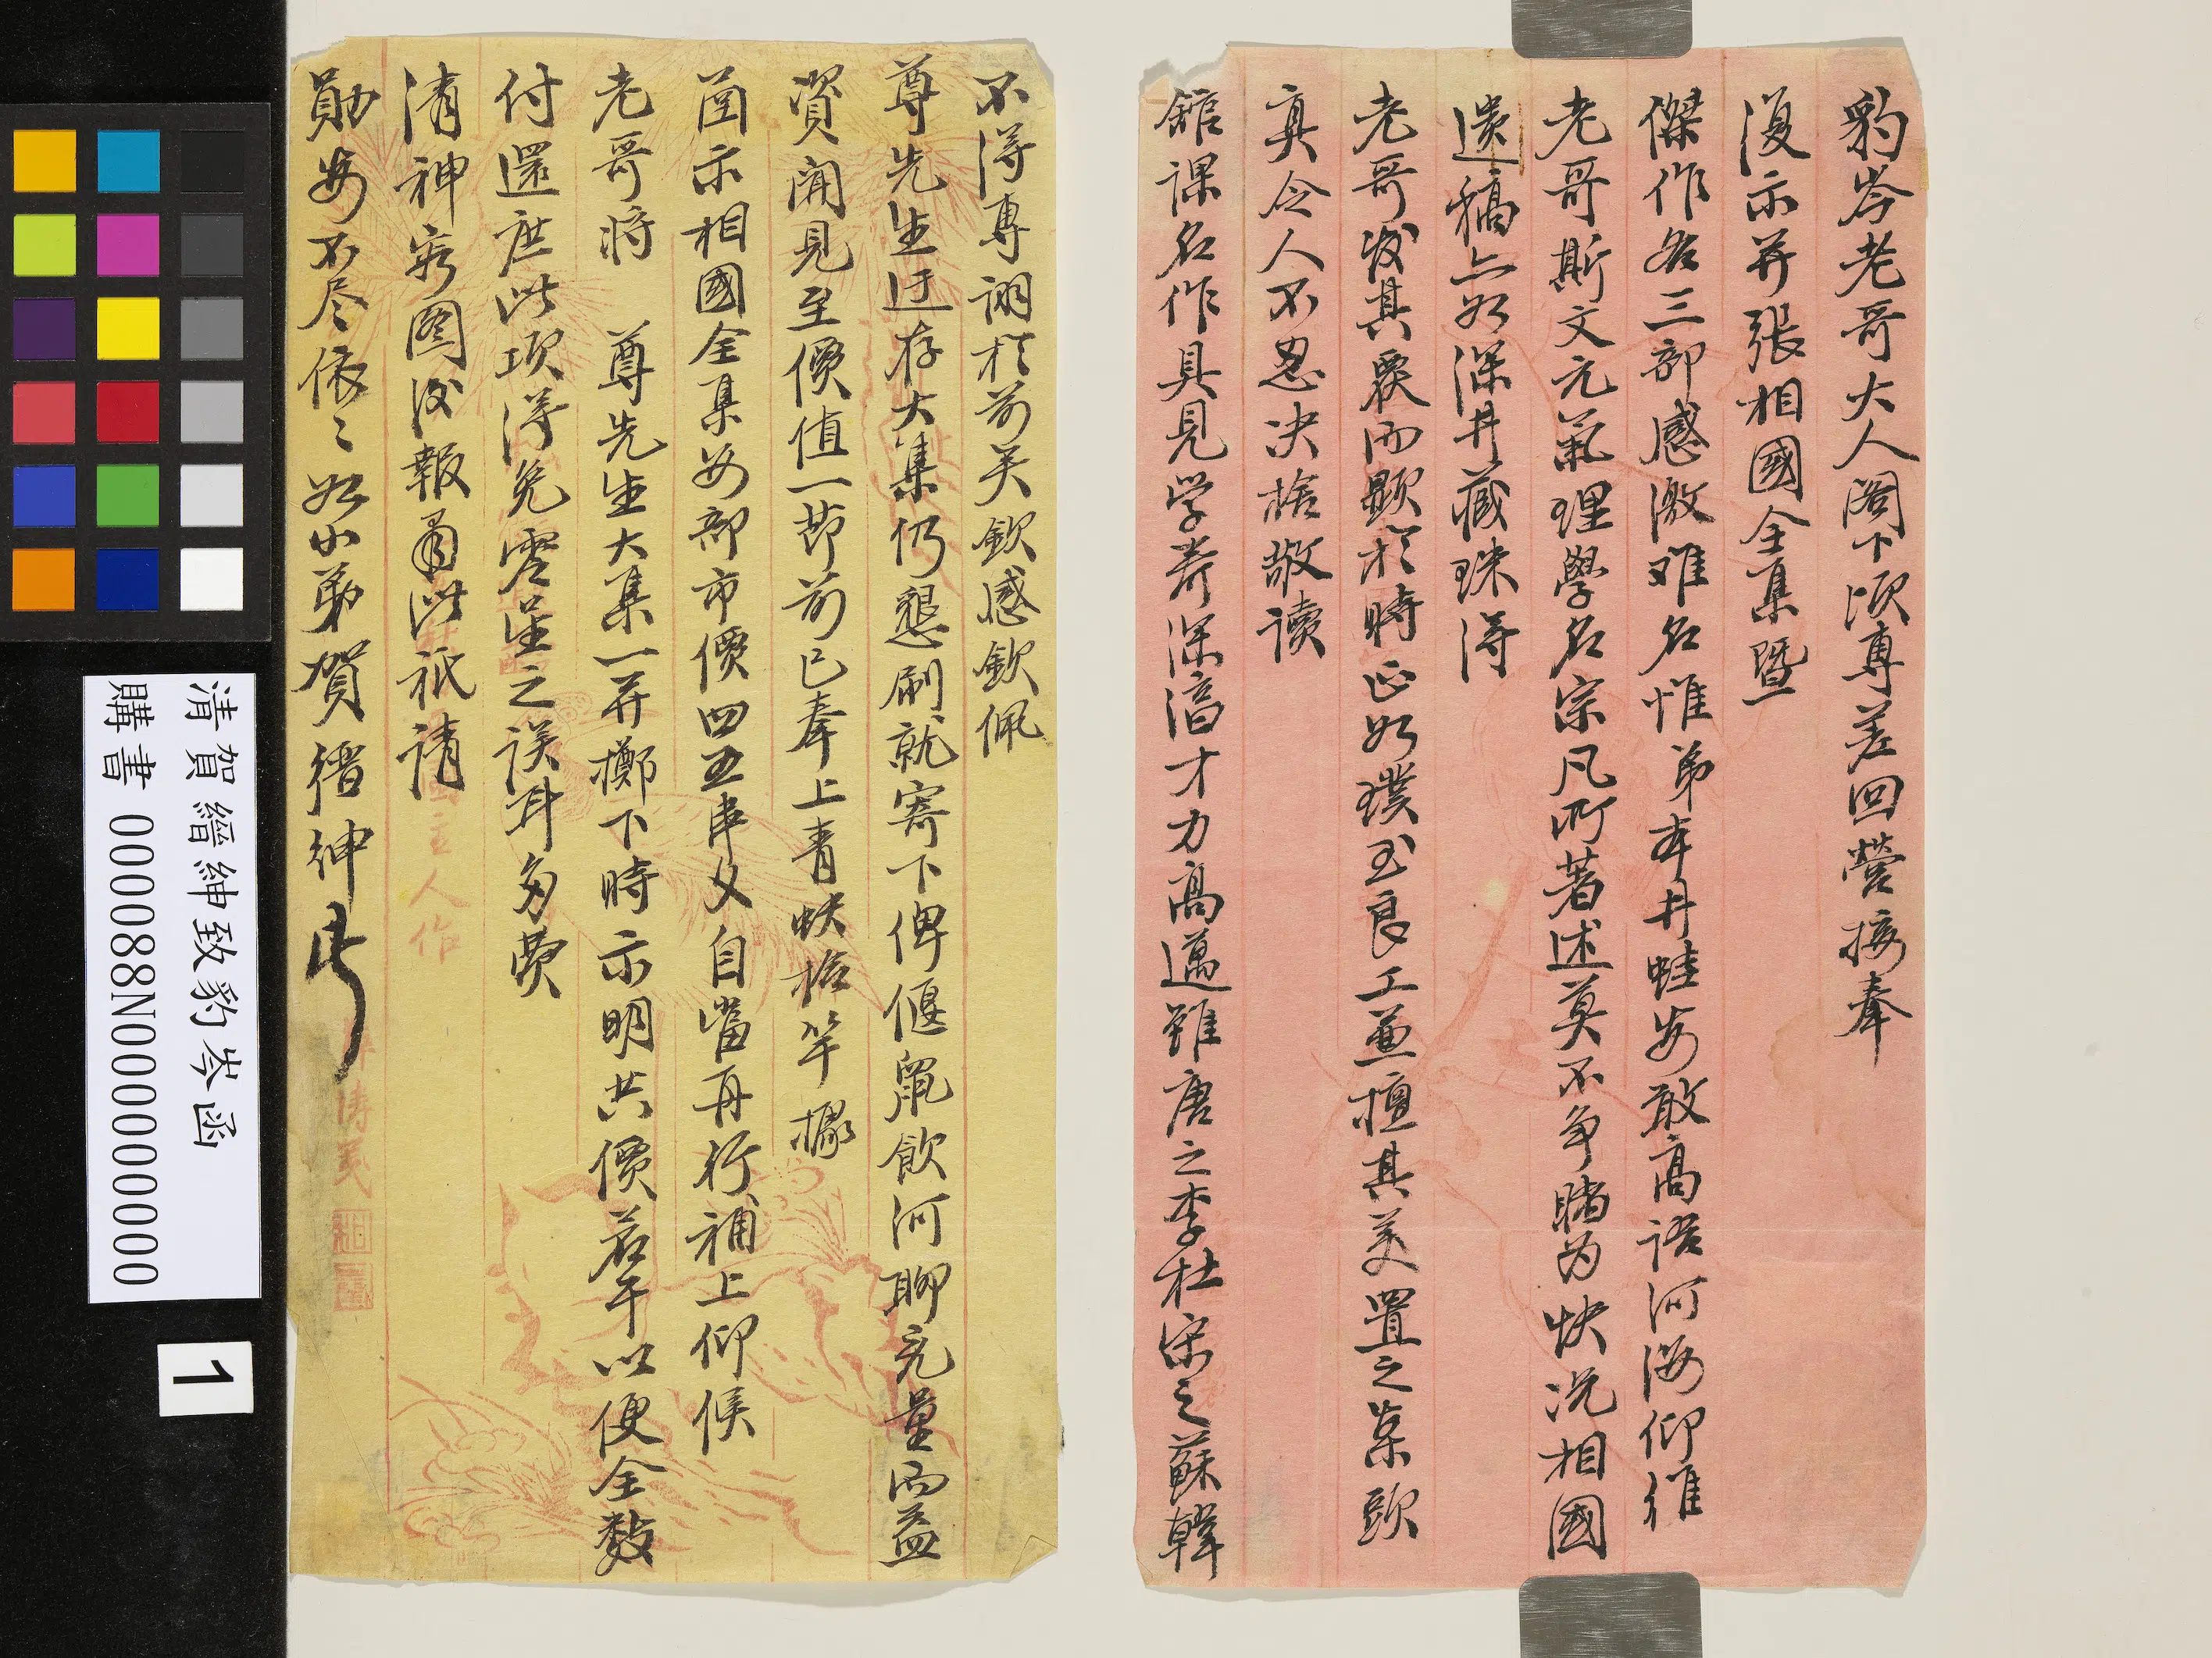 豹岑老哥大人閣下頃專差回營接奉
復示并張相國全集暨
傑作各三部感激难名惟弟本井蛙安敢高語河海仰惟
老哥斯文元氣理學名宗凡所著述莫不争睹为快况相國
遗稿上如深井藏珠得
老哥发其覆而顯於時正如璞玉良工並檀其美置之案頭
真令人不忍决捨敬读
館课名作具見学养深涵才力高邁雖唐之李杜宋之蘇韓
不得專诩於前矣欽感欽佩
尊先生迋存大集仍懇刷就寄下俾偃鼠飲河聊充量而益
資聞見至價值一节前已奉上青蚨拾竿據
函示相國全集每部市價四五串文自當再行補上仰候
老哥將 尊先生大集一并擲下時示明共價若干以便全数
付還庶此項得免零星之误耳多费
清神容图後報肅此祇请
勛安不尽依〻如小弟賀縉紳
清賀縉紳致豹岑函
購書 000088N000000000
1
主人作